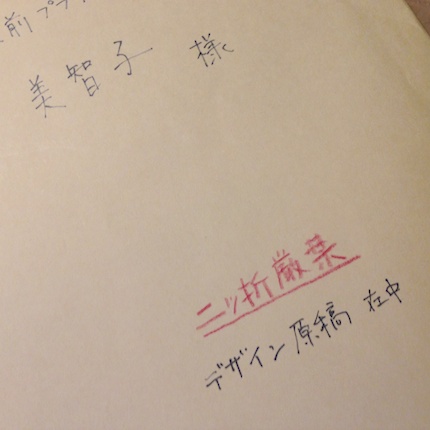 前プラ
美智子 様
二ッ折厳禁
デザイン原稿 在中